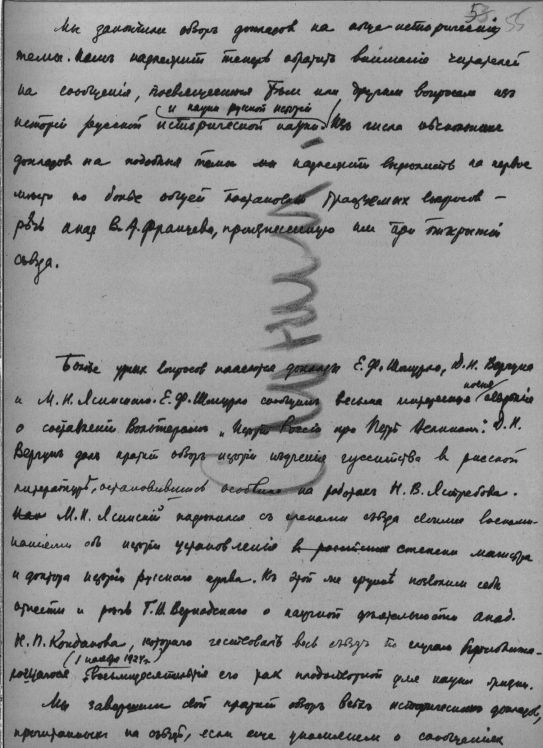 55
Мы закончили обзоръ докладовъ на обще-историческія
темы. Намъ надлежитъ теперь обратить вниманіе читателей
на сообщенія, посвященныя тѣмъ или другимъ вопросамъ изъ
и науки русской исторіи
исторіи русской исторической науки. Изъ числа
докладовъ на подобныя темы мы надлежитъ выдвинуть на первое
мѣсто по болѣе общей постановкѣ вопросовъ –
рѣчь акад. В. А. Францева, произнесенную имъ при открытіи
съѣзда.
Болѣе узкихъ вопросовъ касаются доклады Е. Ф. Шмурло, Д. Н. Вергуна
и М. Н. Ясинскаго. Е. Ф. Шмурло сообщилъ весьма интересныя новыя свѣдѣнія
о составленіи Вольтеромъ „Исторіи Россіи при Петрѣ Великомъ". Д. Н.
Вергунъ далъ краткій обзоръ исторіи изученія гуситства въ русской
литературѣ, остановившись особенно на работахъ Н. В. Ястребова.
М. Н. Ясинскій подѣлился съ членами съѣзда своими воспоми-
наніями объ исторіи установленія въ степени магистра
и доктора исторіи русскаго права. Къ этой же группѣ позволимъ себѣ
отнести и рѣчь Г. В. Вернадскаго о научной дѣятельности акад.
Н. П. Кондакова, котораго чествовалъ весь съѣздъ по случаю
(1 ноября 1924 г.)
восьмидесятилѣтія его столь плодотворной для науки жизни.
Мы завершимъ свой краткій обзоръ всѣхъ историческихъ докладовъ,
прочитанныхъ на съѣздѣ, если еще упомянемъ о сообщеніяхъ